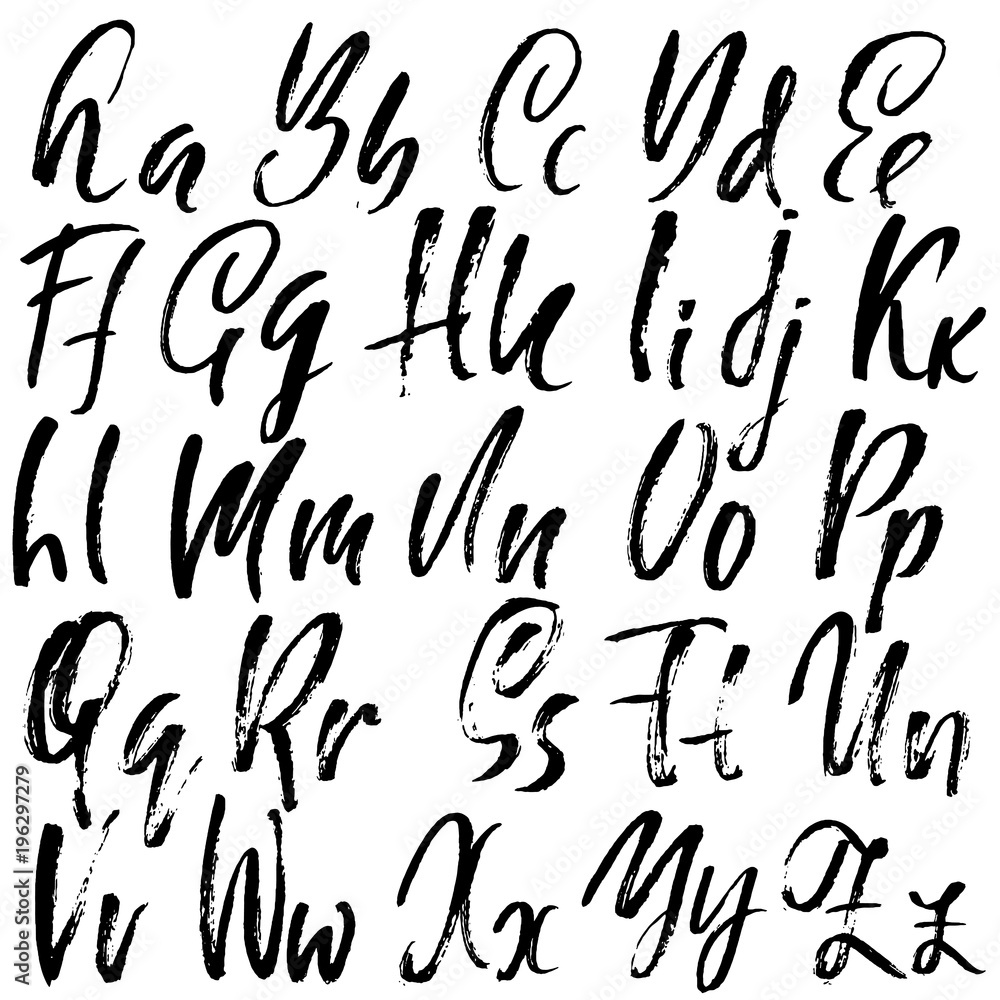 Aa Bb Cc Dd Ee
Ff Gg Hh Ii Jj Kk
Ll Mm Nn Oo Pp
Qq Rr Ss Tt Uu
Vv Ww Xx Yy Zz
Adobe Stock | #196297279